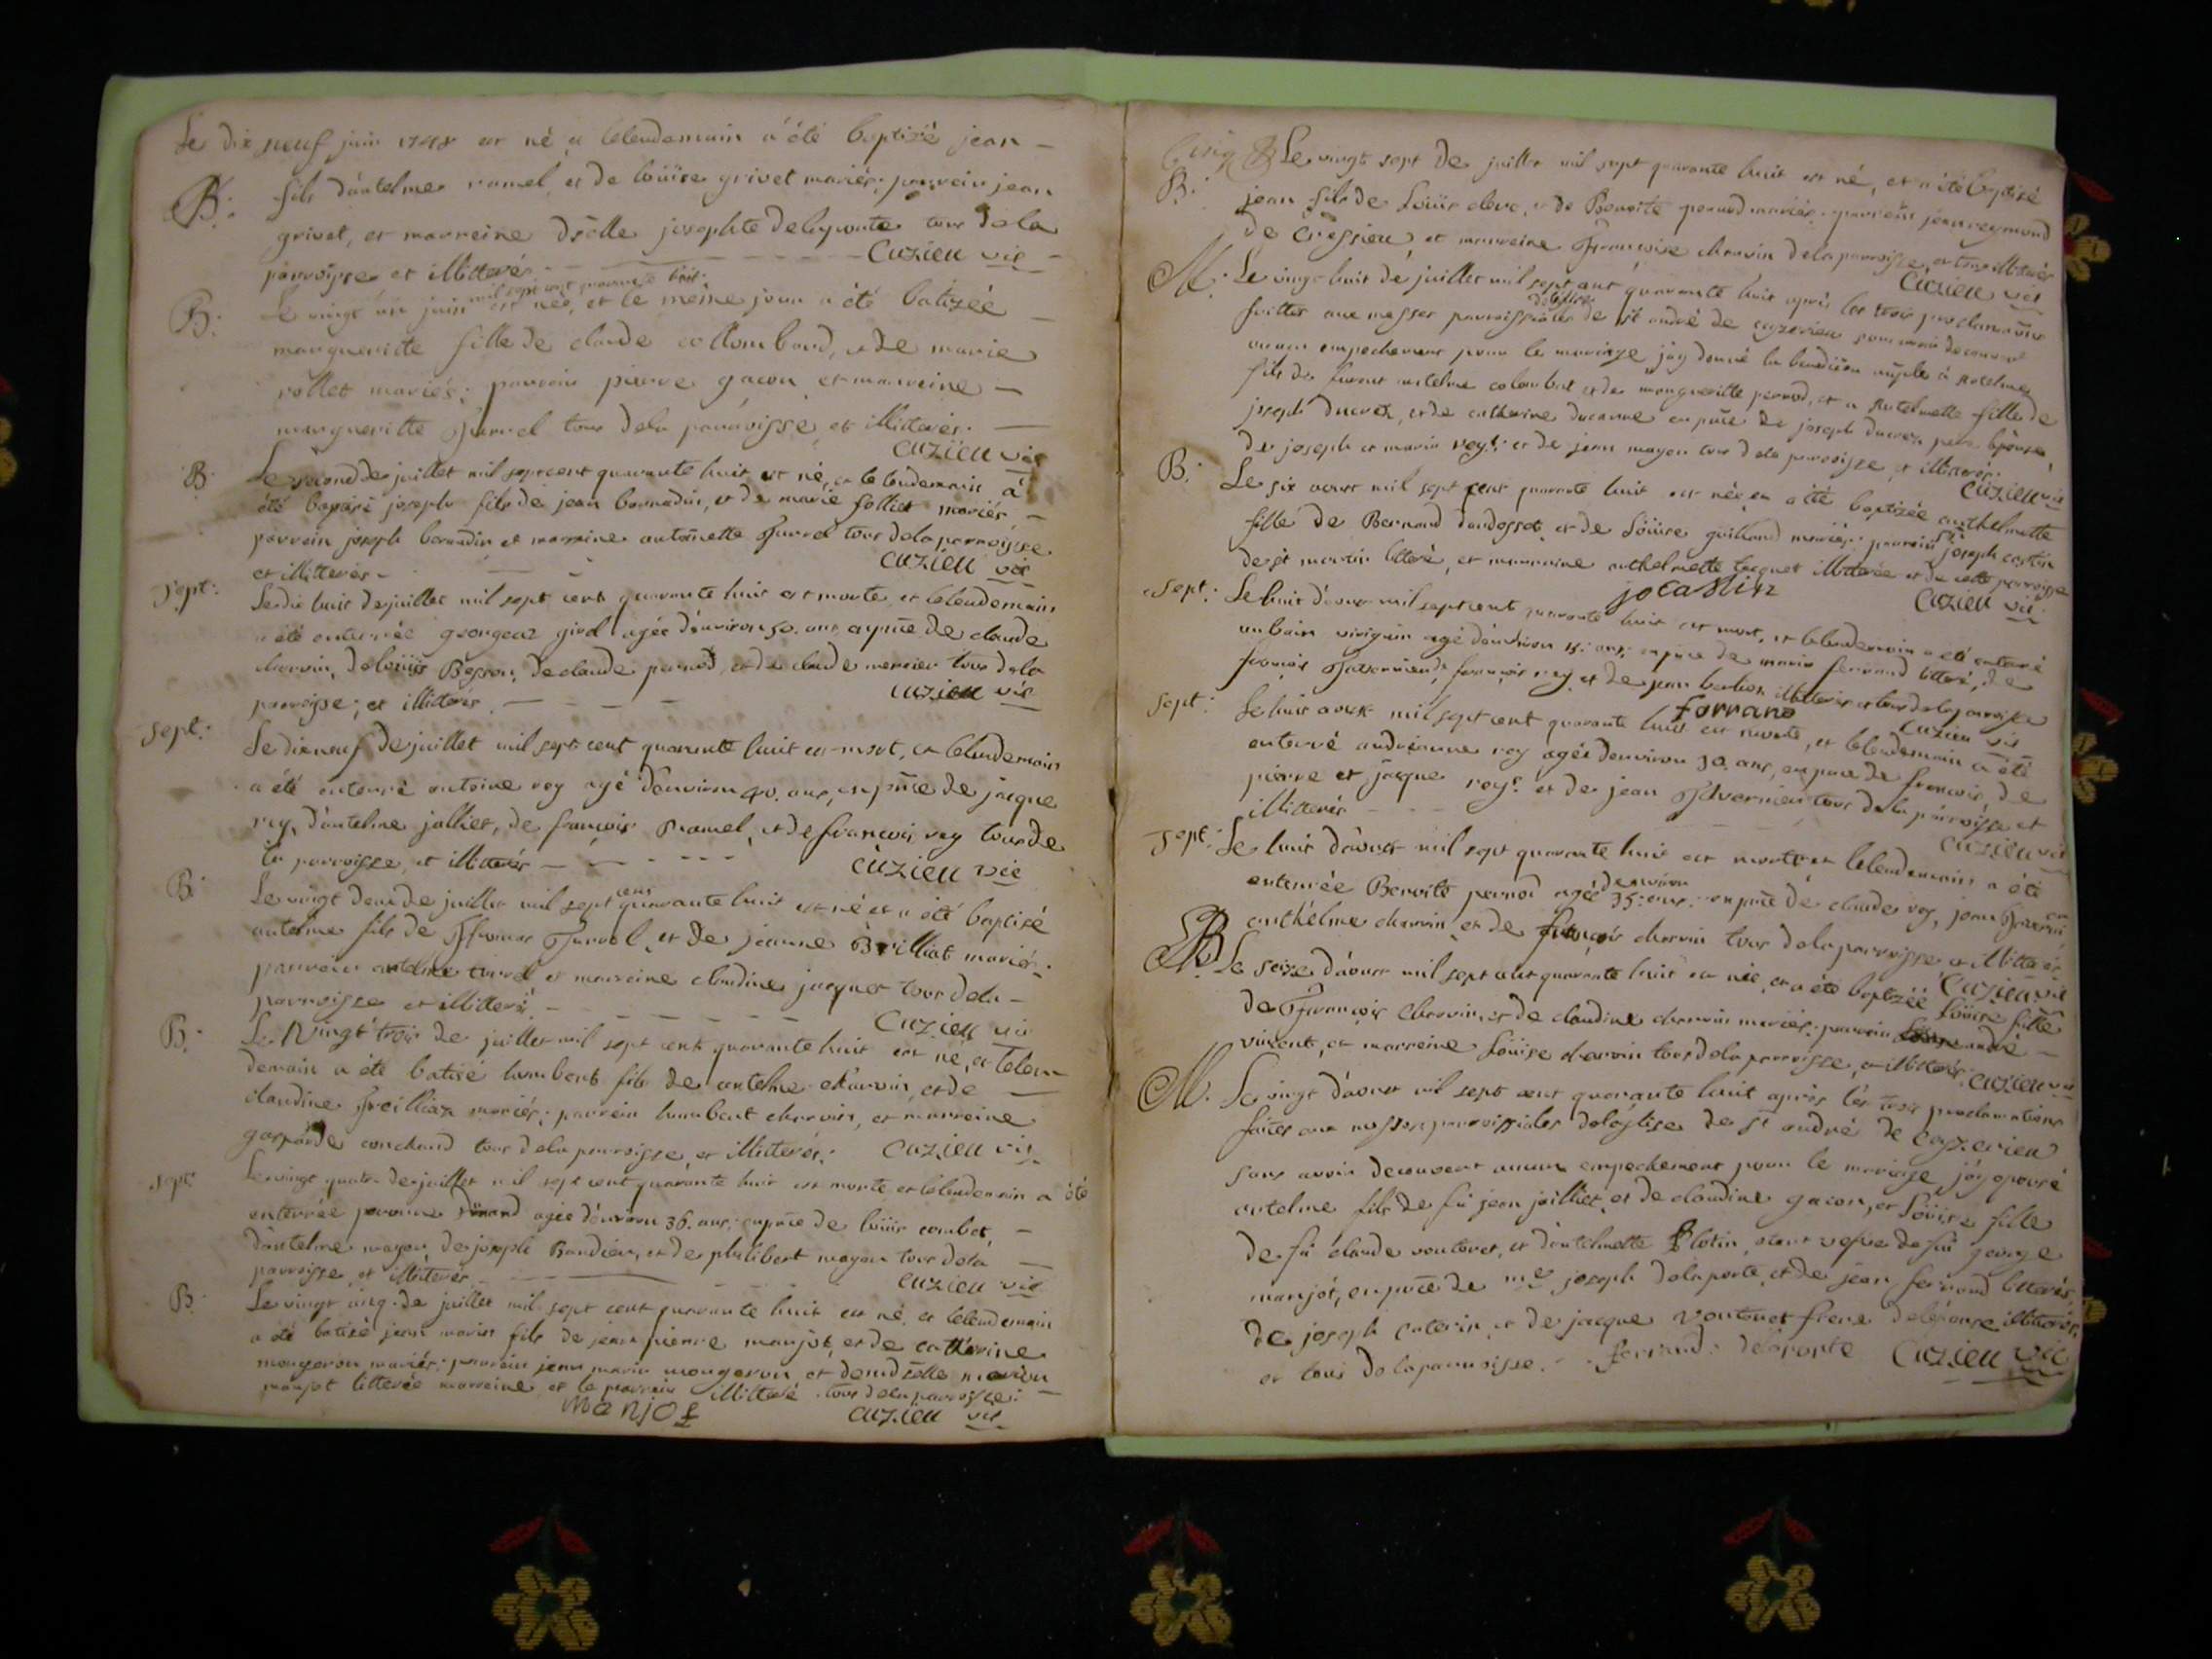 Le dix neuf juin 1748 est né et lelendemain a été baptizé jean
B: fils d'antelme ramel et de loüise grivet mariés; parrein jean
grivet, et marreine dselle josephte delaporte tous dela
parroisse et illitterés cuzieu vic
mil sept cent quarante huit
B: Le vingt un juin est née, et le meme jour a été batizée
margueritte fille de claude collombard, et de marie
rollet mariés; parrein pierre gacon et marreine
margueritte Jurrel tous dela parroisse et illitterés.
cuzieu vic
B: Le second de juillet mil sept cent quarante huit est né, et le lendemain a
été baptisé joseph fils de jean bernadin, et de marie folliet mariés
parrein joseph bernadin et marreine antoinette Jurrel tous dela parroisse
et illitterés cuzieu vic
sept: Le dix huit de juillet mil sept cent quarante huit est morte et lelendemain
a été enterrée agée d'environ 50. ans, en pnce de claude
charvin, de loüis Besson, de claude pernod, et de claude mercier tous dela
parroisse; et illitterés cuzieu vic
sept: Le dixneuf de juillet mil sept cent quarante huit est mort, et lelendemain
a été enterré antoine rey agé d'environ 40. ans, en pnce de jacque
rey, d'antelme jolliet, de françois ramel, et de francois rey tous de
la parroisse et illitterés cuzieu vic
cent
B: Le vingt deux de juillet mil sept quarante huit est né et a été baptisé
antelme fils de Jurrel et de jeanne Brilliat mariés:
parrein antelme turrel et marreine claudine jacquet tous dela
parroisse et illitterés cuzieu vic
B: Le vingt trois de juillet mil sept cent quarante huit est né, et lelen
demain a été batisé humbert fils de antelme charvin, et de
claudine mariés; parrein humbert charvin, et marreine
gasparde conchand tous dela parroisse, et illitterés: cuzieu vic
sept: Le vingt quatre de juillet mil sept cent quarante huit est morte et lelendemain a été
enterrée agée d'environ 36. ans; en pnce de loüis combet,
d'antelme mayou, de joseph et de philibert mayou tous dela
parroisse et illitterés cuzieu vic
B: Le vingt cinq de juillet mil sept cent quarante huit est né, et lelendemain
a été batizé jean marin fils de jean pierre manjot, et de catherine
mongeron mariés: parrein jean marin mongeron et demdselle marion
manjot litterée marreine, et le parrein illitteré tous dela parroisse:
manjot cuzieu vic
Le vingt sept de juillet mil sept quarante huit est né, et a été baptisé
B: jean fils de Loüis et de Benoite pernod mariés. parrein jean reymond
de Cressieu et marreine Françoise charvin dela parroisse, et tous illitterés
cuzieu vic
M: Le vingt huit de juillet mil sept cent quarante huit après les trois proclamations
de l'eglise
faittes aux messes parroissiales de st andré de ceyzerieu sans avoir decouvert
aucun empechement pour le mariage j'ay donné la benediction nuptle à Antelme
fils de feu antelme colombet et de margueritte pernod, et a Antelmette fille de
joseph ducrest, et de catherine ducarme en pnce de joseph ducrest pere l'épouse,
de joseph et marin rey: et de jean mayou tous dela parroisse et illitterés:
cuzieu vic
B: Le six aoust mil sept cent quarante huit est née, et a été baptizée anthelmette
fille de Bernard et de Loüise guilland mariés: parrein joseph castin
de st martin litteré, et marreine anthelmette jacquet illitterée et de cette parroisse
jo castin cuzieu vic
sept: Le huit d'aoust mil sept cent quarante huit est mort, et lelendemain a été enterré
agé d'environ 15. ans, en pnce de marin ferrand litteré, de
françois Javernieu, françois rey, et de jean illitterés et tous dela parroisse
ferrand cuzieu vic
sept: Le huit aoust mil sept cent quarante huit est morte, et lelendemain a été
enterré andréanne rey agée d'environ 30. ans, en pnce de françois, de
pierre et jacque reys: et de jean Javernieu tous dela parroisse et
illitterés cuzieu vic
sept: Le huit d'aoust mil sept quarante huit est morte et lelendemain a été
denviron
enterrée Benoite pernod agée 35. ans. en pnce de claude rey, jean
anthelme charvin et de françois charvin tous dela parroisse et illitterés
cuzieu vic
B: Le seize d'aoust mil sept cent quarante huit est née, et a été baptizée Loüise fille
de François Charvin, et de claudine charvin mariés: parrein andré
vincent, et marreine Loüise charvin tous dela parroisse, et illitterés: cuzieu vic
M. Le vingt d'aoust mil sept cent quarante huit après les trois proclamations
faites aux messes parroissiales de l'eglise de st andré de ceyzerieu
sans avoir decouvert aucun empechement pour le mariage j'ay epousé
antelme fils de fû jean jolliet, et de claudine gacon, et Loüise fille
de fû claude et d'antelmette Blotin, etant vefve de fû george
manjot, en pnce de me joseph delaporte, et de jean ferrand litterés,
de joseph caterin et de jacque frere de l'épouse illitterés,
et tous dela parroisse. ferrand: delaporte cuzieu vic